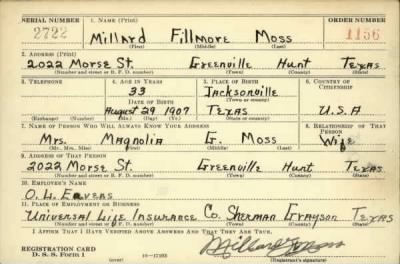 SERIAL NUMBER 1. NAME (Print) ORDER NUMBER
2722 Millard Fillmore Moss 1156
(First) (Middle) (Last)
2. ADDRESS (Print)
2022 Morse St. Greenville Hunt Texas
(Number and street or R. F. D. number) (Town) (County) (State)
3. TELEPHONE 4. AGE IN YEARS 5. PLACE OF BIRTH 6. COUNTRY OF CITIZENSHIP
33 Jacksonville
DATE OF BIRTH (Town or county)
August 29 1907 Texas U.S.A
(Exchange) (Number) (Mo.) (Day) (Yr.) (State or country)
7. NAME OF PERSON WHO WILL ALWAYS KNOW YOUR ADDRESS 8. RELATIONSHIP OF THAT PERSON
Mrs. Magnolia G. Moss Wife
(Mr., Mrs., Miss) (First) (Middle) (Last)
9. ADDRESS OF THAT PERSON
2022 Morse St. Greenville Hunt Texas
(Number and street or R. F. D. number) (Town) (County) (State)
10. EMPLOYER'S NAME
O. L. Eavers
11. PLACE OF EMPLOYMENT OR BUSINESS
Universal Life Insurance Co. Sherman Grayson Texas
(Number and street or R. F. D. number) (Town) (County) (State)
I AFFIRM THAT I HAVE VERIFIED ABOVE ANSWERS AND THAT THEY ARE TRUE.
REGISTRATION CARD
D. S. S. Form 1 (over) 16—17105 Millard F Moss
(Registrant's signature)